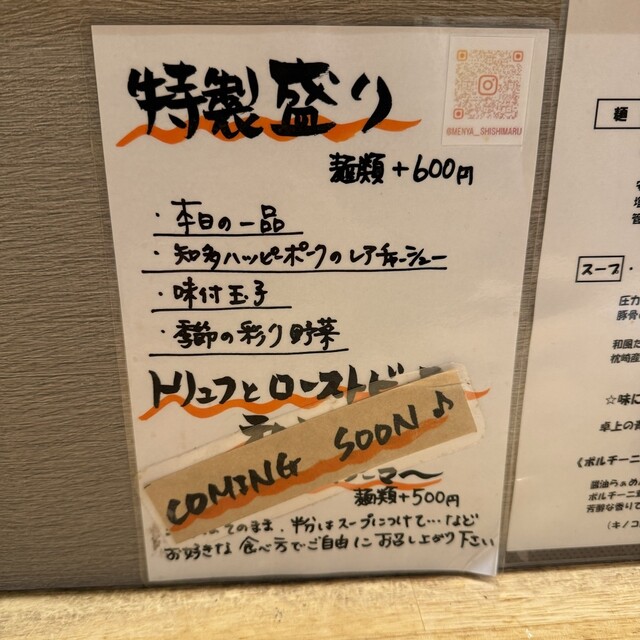 特製盛り
@MENYA_SHISHIMARU
麺類+600円
・本日の一品
・知多ハッピーポークのレアチャーシュー
・味付玉子
・季節の彩り野菜
トリュフとローストビーフ
COMING SOON♪
麺類+500円
そのまま、半分はスープにつけて…など
お好きな食べ方でご自由にお召し上がり下さい
麺
スープ・
圧力
豚骨
和風だ
枕崎産
☆味に
卓上の
《ポルチーニ
醤油らぁめ
ポルチーニ
芳醇な香りで
(キノコ